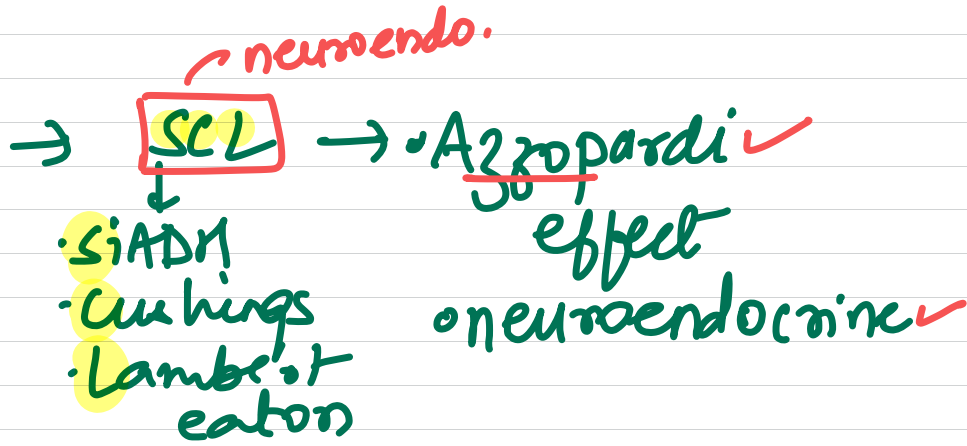 neuroendo.
→ SCL → • Azzopardi ✓
effect
• neuroendocrine ✓
• SiADH
• Cushings
• Lambert
eaton